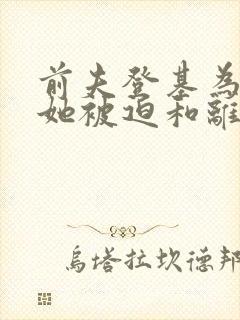 前夫登基為
她被迫和離
烏塔拉坎德邦